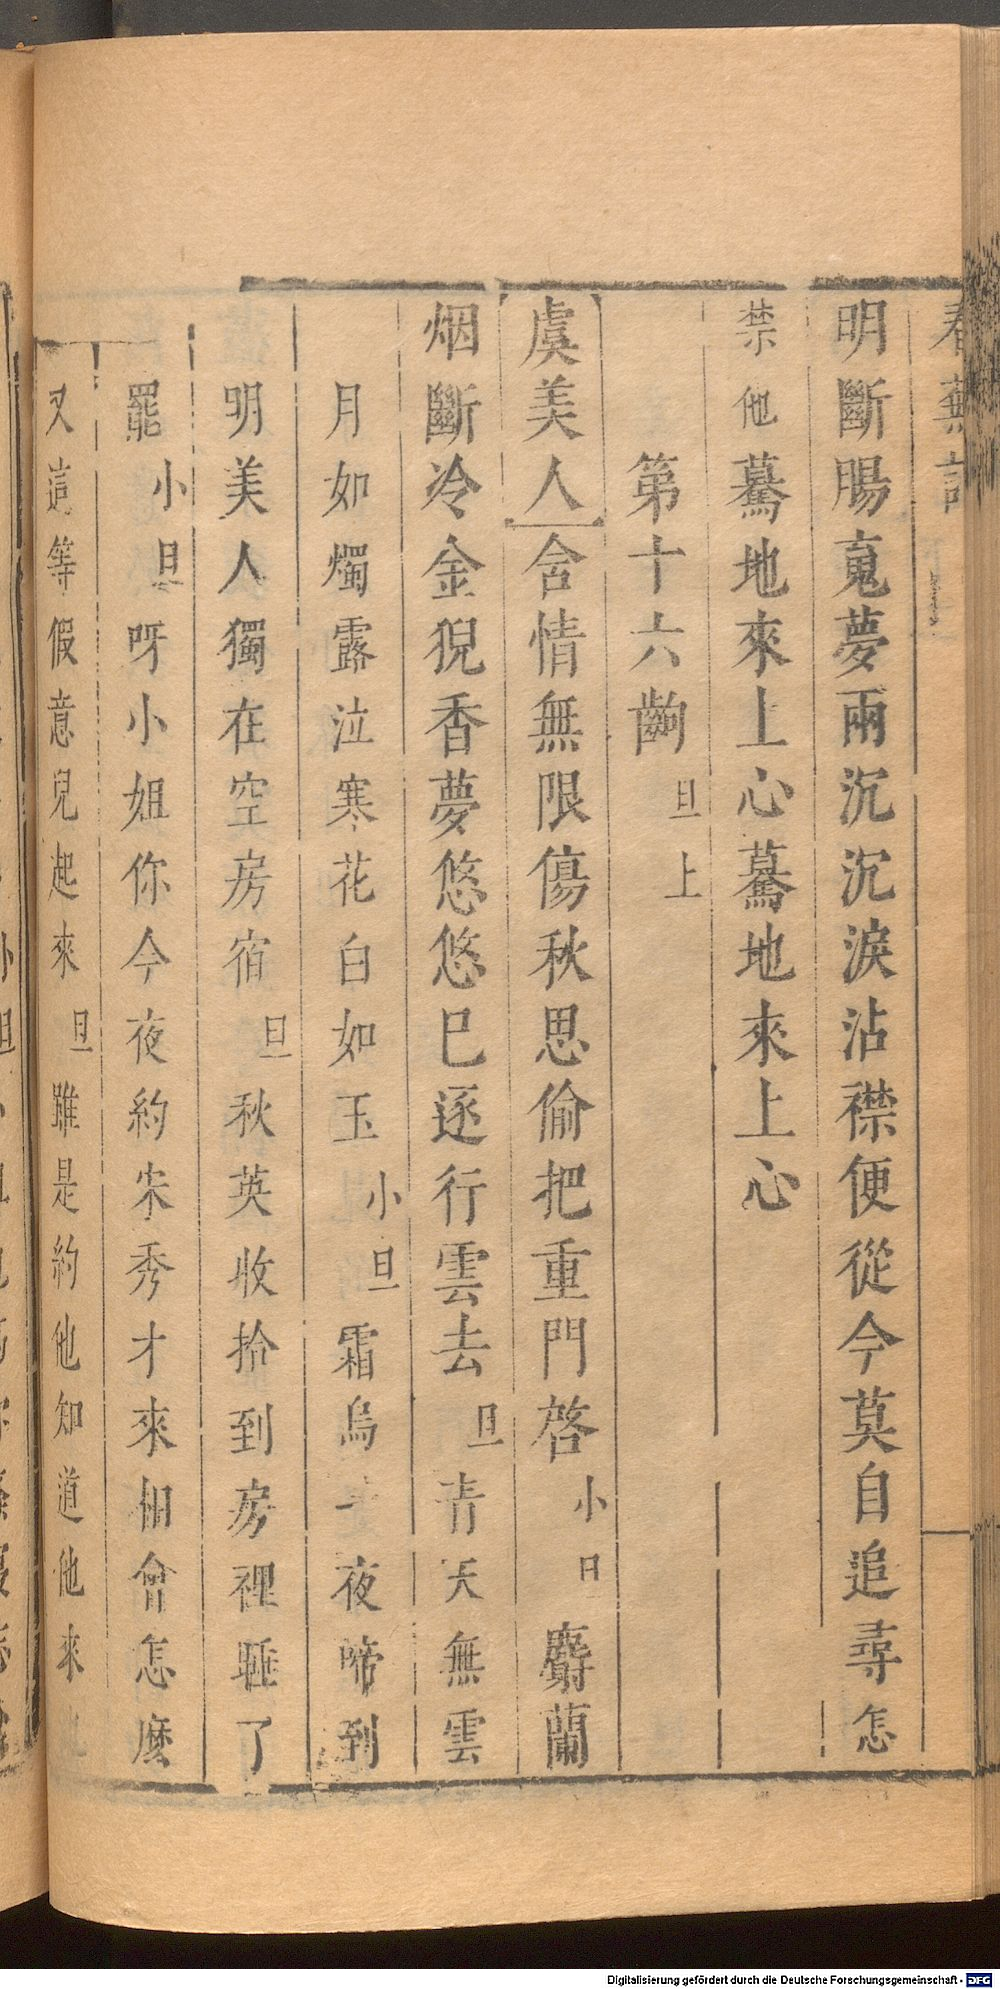 春蕪記
明斷腸䰟夢兩沉沉淚沾襟便從今莫自追尋怎
禁他驀地來上心驀地來上心
第十六齣 旦上
虞美人 含情無限傷秋思偷把重門啓 小旦 麝蘭
烟斷冷金猊香夢悠悠巳逐行雲去 旦 青天無雲
月如燭露泣寒花白如玉 小旦 霜烏 夜啼到
明美人獨在空房宿 旦 秋英收拾到房裡睡了
罷 小旦 呀小姐你今夜約宋秀才來相會怎麽
又這等假意兒起來 旦 雖是約他知道他來
Digitalisierung gefördert durch die Deutsche Forschungsgemeinschaft - DFG